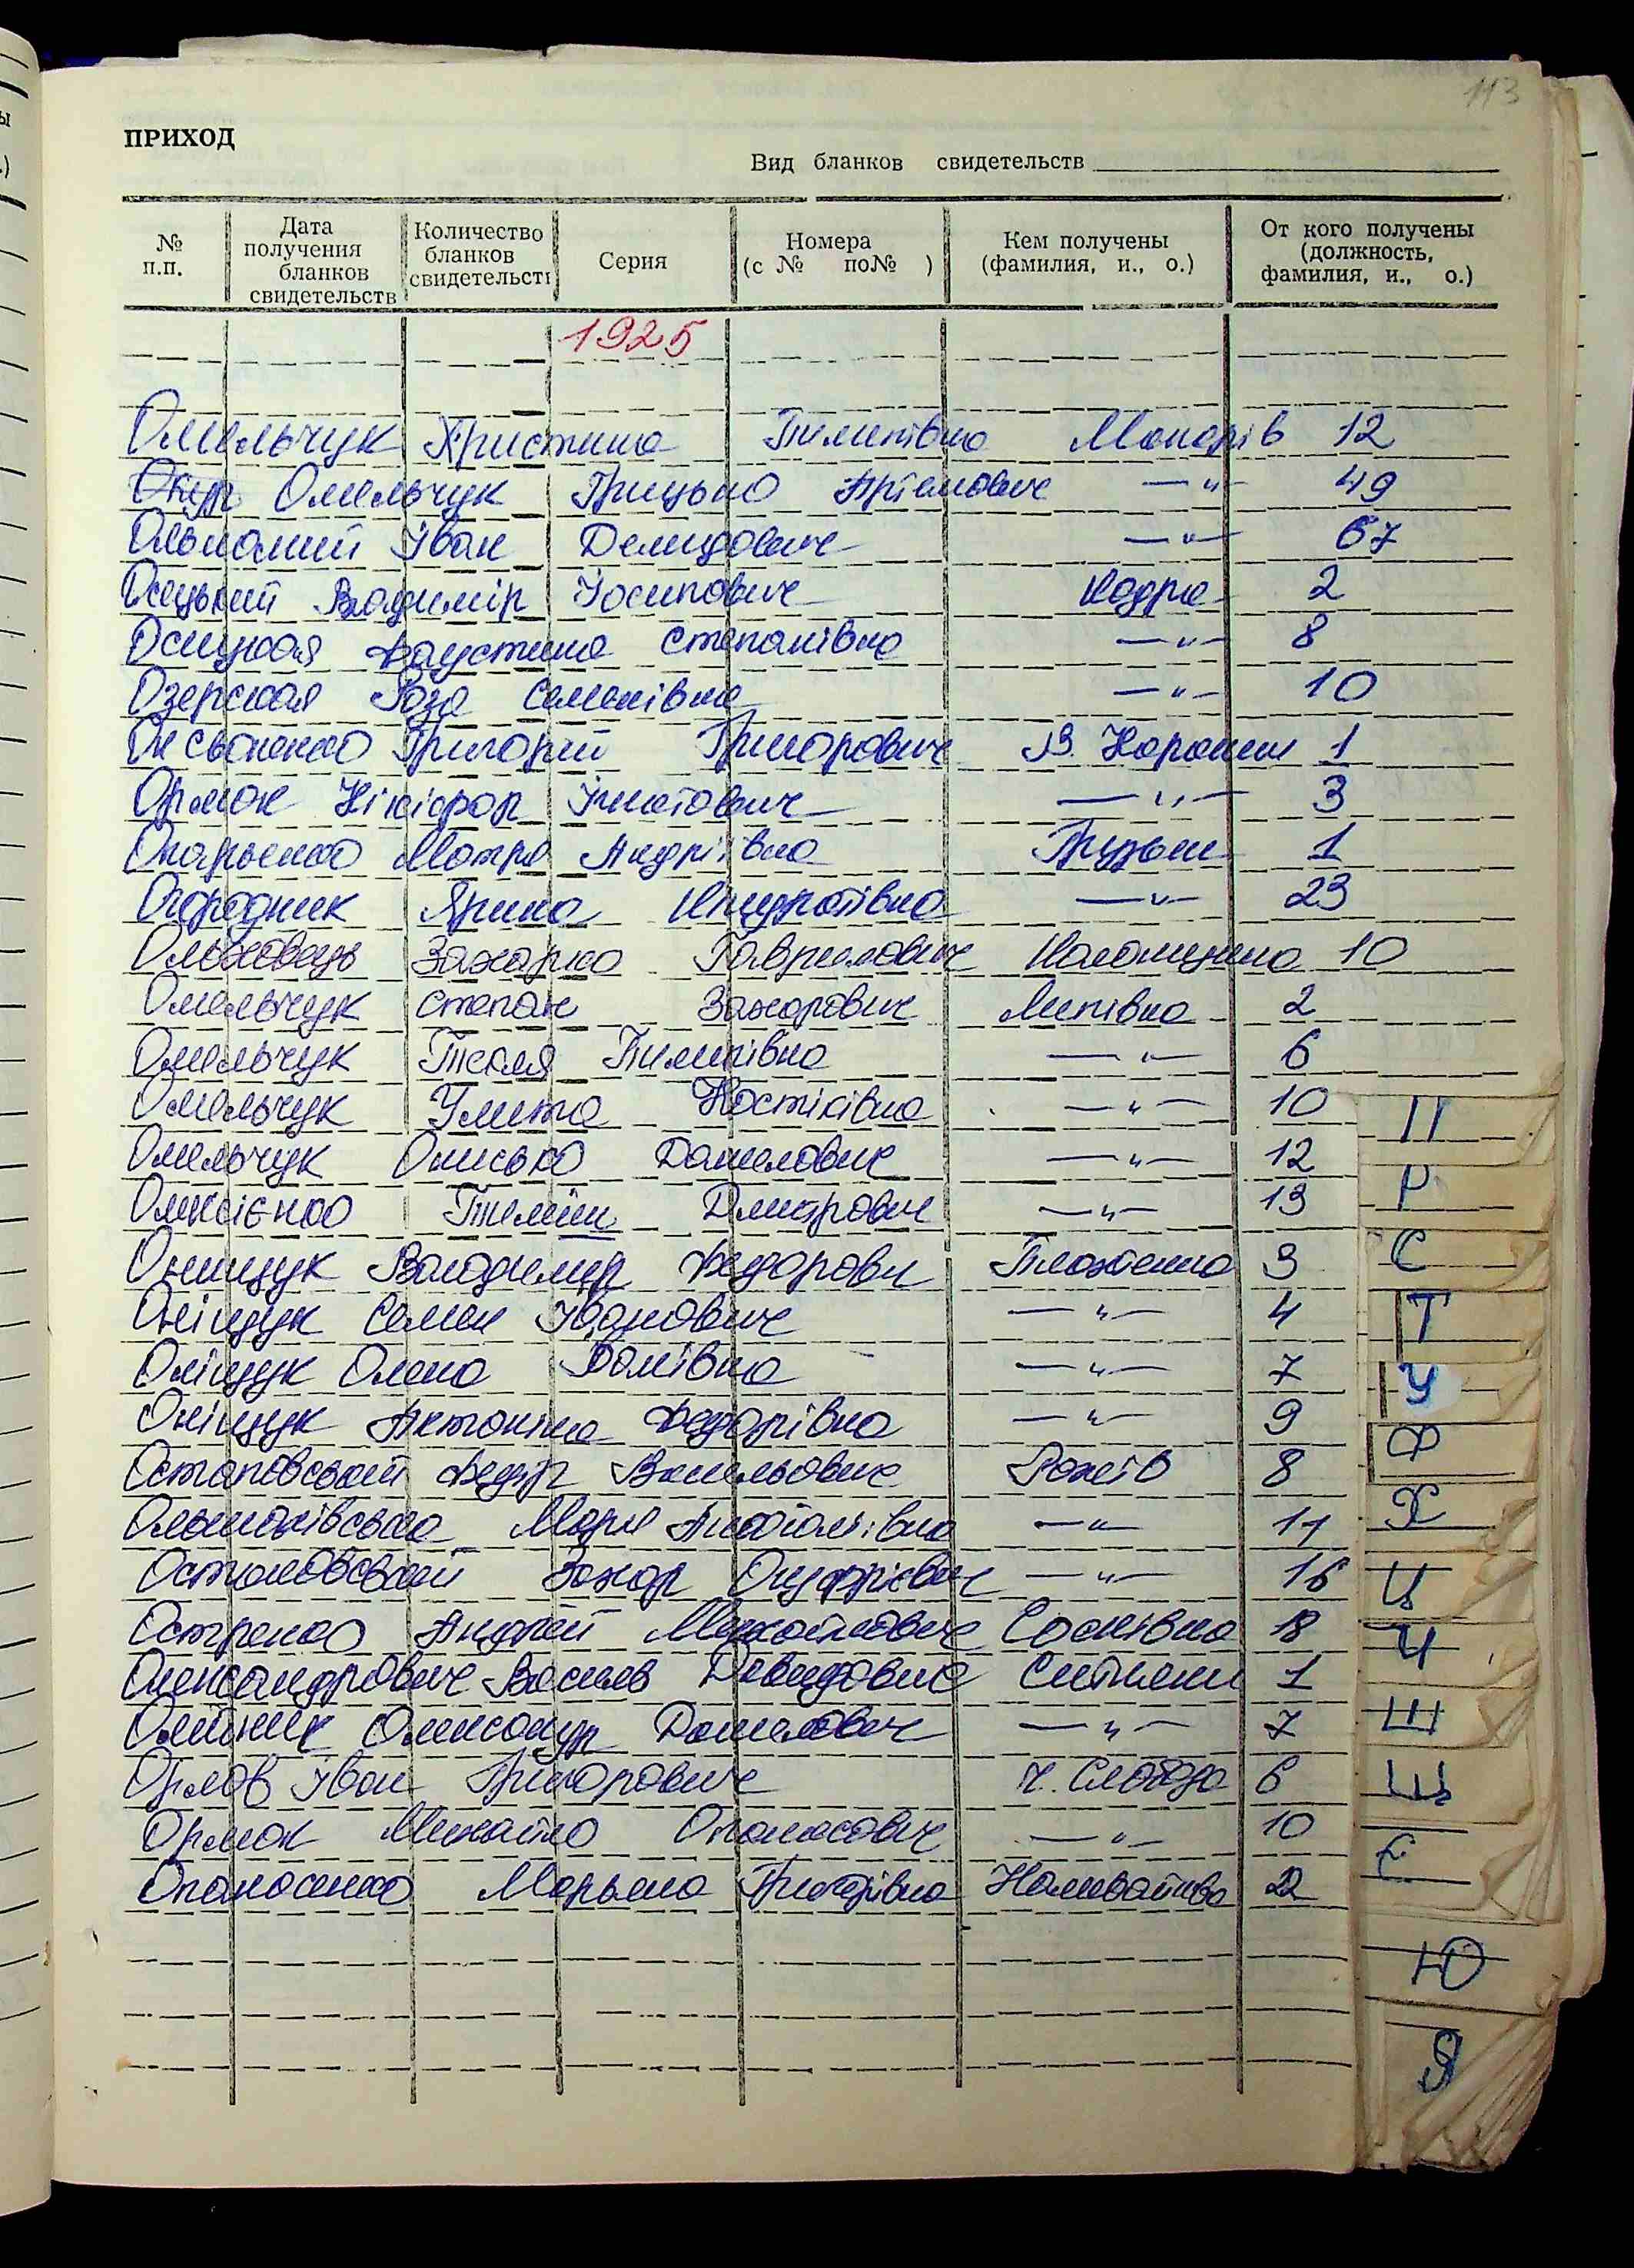 113
ПРИХОД
Вид бланков свидетельств
№ п.п. Дата получения бланков свидетельств Количество бланков свидетельств Серия Номера (с № по№ ) Кем получены (фамилия, и., о.) От кого получены (должность, фамилия, и., о.)
1925
Омельчук Христина Пилипівна Макарів 12
Омельчук Грицько Артемович —"— 49
Іван Демидович —"— 67
Осецький Владимір Йосипович Кодра 2
Осицкая Фаустина Степанівна —"— 8
Озерская Роза Семенівна —"— 10
Григорій Григорович В. Карашин 1
Орлюк Нікіфор Ігнатович —"— 3
Мотря Андріївна Грузьке 1
Огородник Ярина Кіндратівна —"— 23
Ольховець Захарко Гаврилович Коломицина 10
Омельчук Степан Захарович Липівка 2
Омельчук Текля Пилипівна —"— 6
Омельчук Улита Костівна —"— 10
Омельчук Олисько Данилович —"— 12
Олексієнко Пилип Дмитрович —"— 13
Онищук Володимир Федорович Плахтянка 3
Оніщук Семен Іванович —"— 4
Оніщук Олена —"— 7
Оніщук Антоніна Федорівна —"— 9
Остаповський Федір Васильович Рожів 8
Марія Анатоліївна —"— 11
Остаповський Захар Онуфрієвич —"— 16
Острenko Андрій Михайлович Соснівка 18
Олександрович Василь Давидович Ситняки 1
Олійник Олександр Данилович —"— 7
Орлов Іван Григорович Ч. Слобода 6
Орлюк Михайло Опанасович —"— 10
Опанасенко Мар'яна Григорівна Наливайківка 22
П
Р
С
Т
У
Ф
Х
Ц
Ч
Ш
Щ
Є
Ю
Я